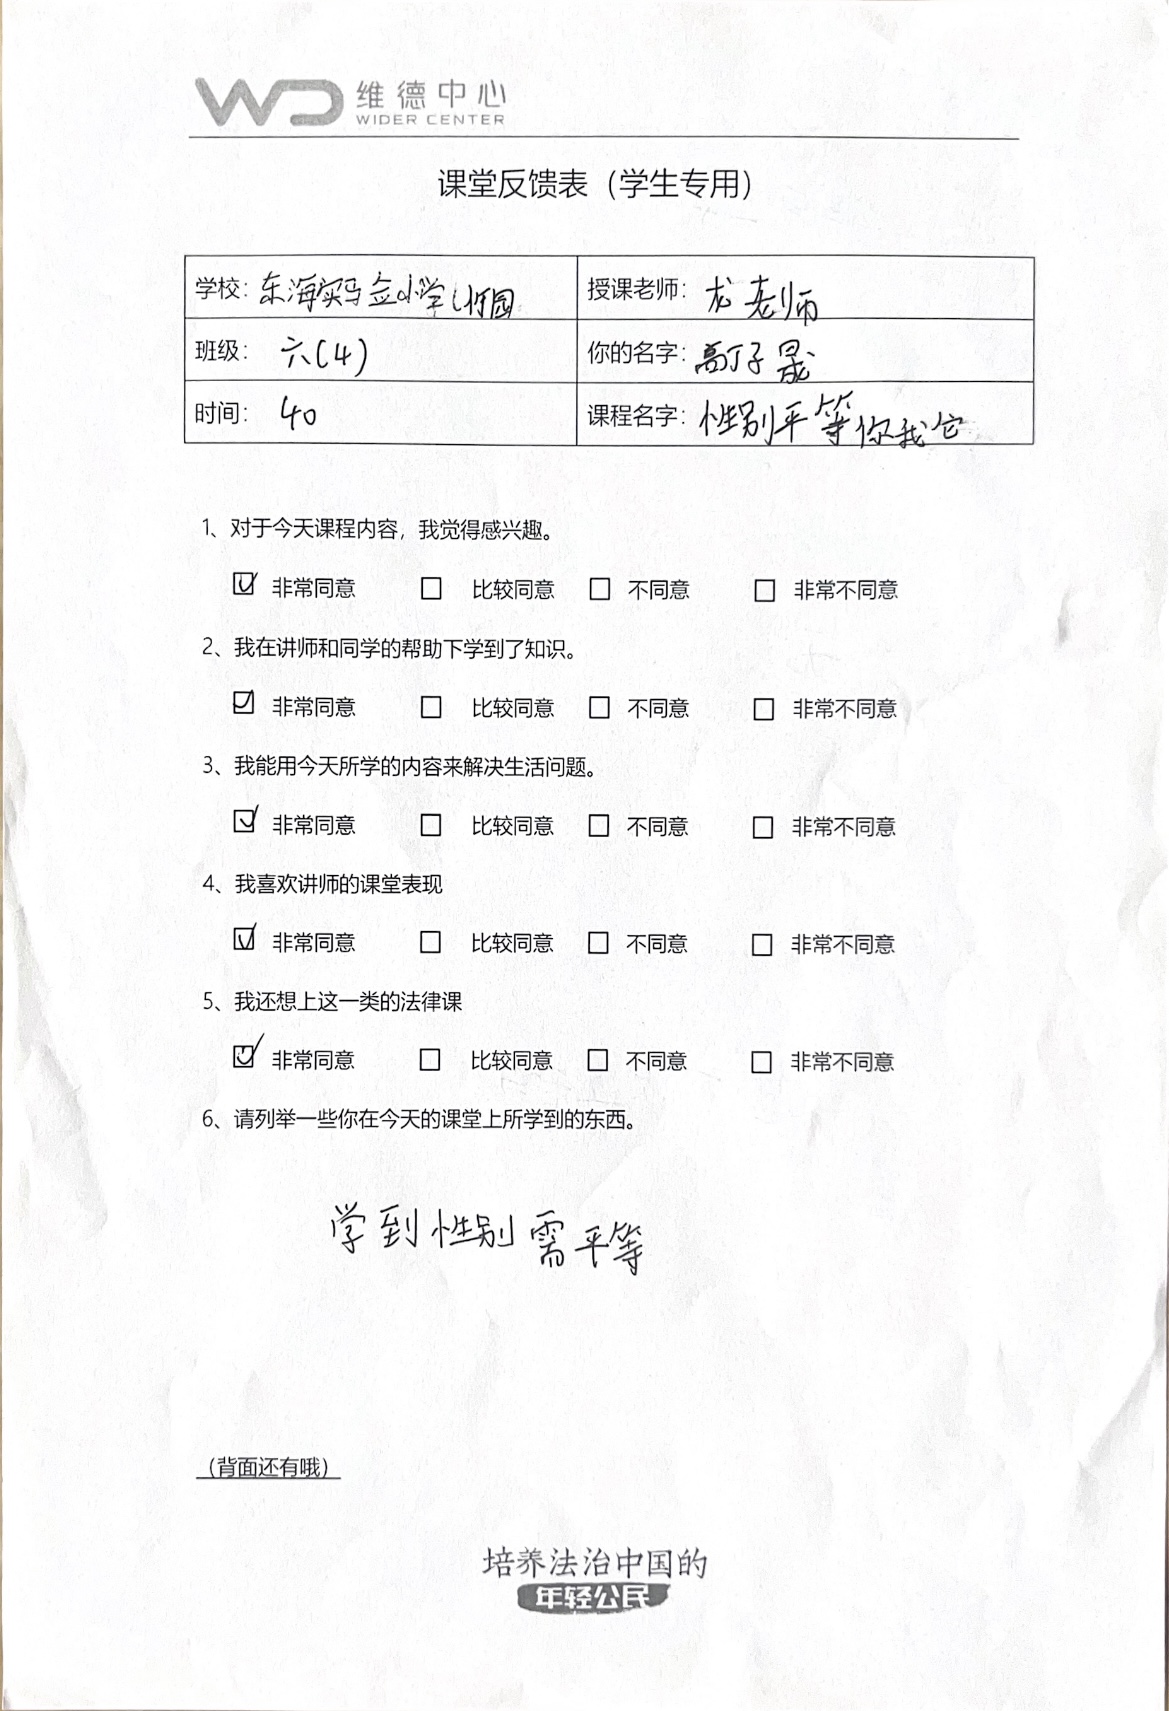 维德中心
WIDER CENTER
课堂反馈表（学生专用）
学校：东海实验小学竹园
授课老师：龙老师
班级：六(4)
你的名字：高子晟
时间：40
课程名字：性别平等你我它
1、对于今天课程内容，我觉得感兴趣。
☑ 非常同意 □ 比较同意 □ 不同意 □ 非常不同意
2、我在讲师和同学的帮助下学到了知识。
☑ 非常同意 □ 比较同意 □ 不同意 □ 非常不同意
3、我能用今天所学的内容来解决生活问题。
☑ 非常同意 □ 比较同意 □ 不同意 □ 非常不同意
4、我喜欢讲师的课堂表现
☑ 非常同意 □ 比较同意 □ 不同意 □ 非常不同意
5、我还想上这一类的法律课
☑ 非常同意 □ 比较同意 □ 不同意 □ 非常不同意
6、请列举一些你在今天的课堂上所学到的东西。
学到性别需平等
（背面还有哦）
培养法治中国的
年轻公民